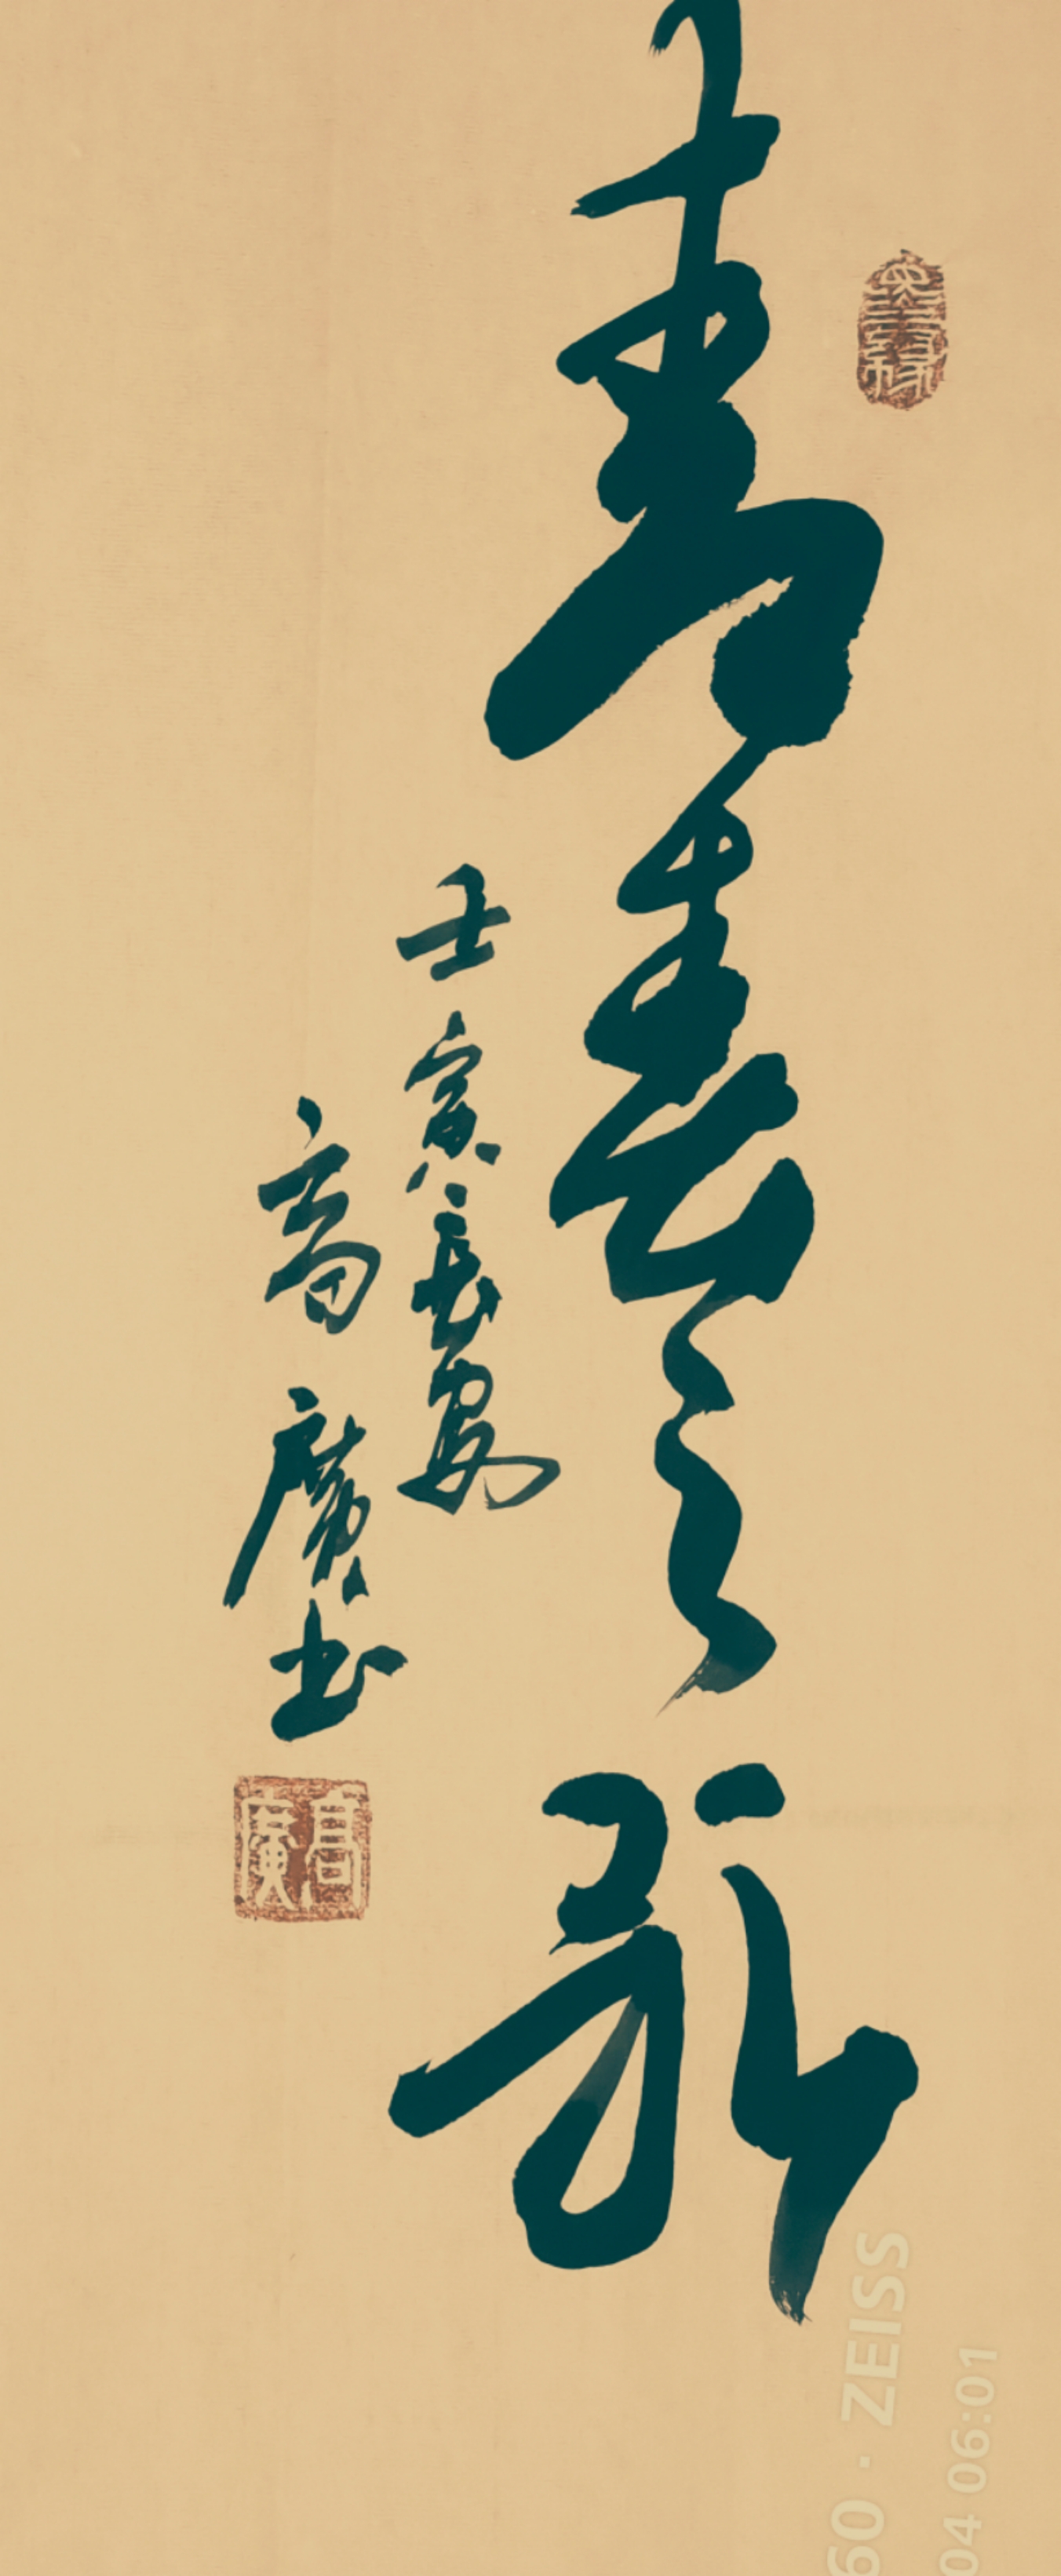 青春之歌
壬寅長安
高廣書
高廣
60 · ZEISS
04 06:01